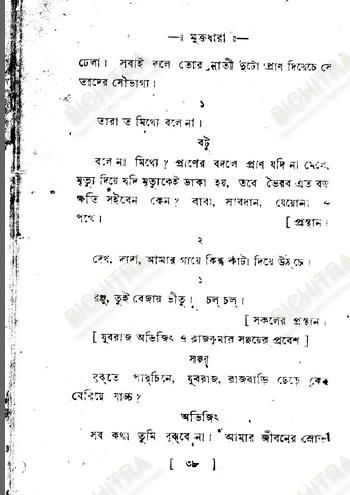 —॥ মুক্তধারা ॥—
ঢেলা। সবাই বলে তোর নাতী দুটো প্রাণ দিয়েচে সে
তাদের সৌভাগ্য।
১
তারা ত মিথ্যে বলে না।
বটু
বলে না মিথ্যে? প্রাণের বদলে প্রাণ যদি না মেলে,
মৃত্যু দিয়ে যদি মৃত্যুকেই ডাকা হয়, তবে ভৈরব এত বড়
ক্ষতি সইবেন কেন? বাবা, সাবধান, যেয়োনা ও
পথে। [ প্রস্থান।
২
দেখ, দাদা, আমার গায়ে কিন্তু কাঁটা দিয়ে উঠচে।
১
রঞ্জু, তুই বেজায় ভীতু। চল্ চল্।
[ সকলের প্রস্থান।
[ যুবরাজ অভিজিৎ ও রাজকুমার সঞ্জয়ের প্রবেশ ]
সঞ্জয়
বুঝতে পারচিনে, যুবরাজ, রাজবাড়ি ছেড়ে কেন
বেরিয়ে যাচ্চ?
অভিজিৎ
সব কথা তুমি বুঝবে না। আমার জীবনের স্রোত
[ ৩৮ ]
BICHITRA